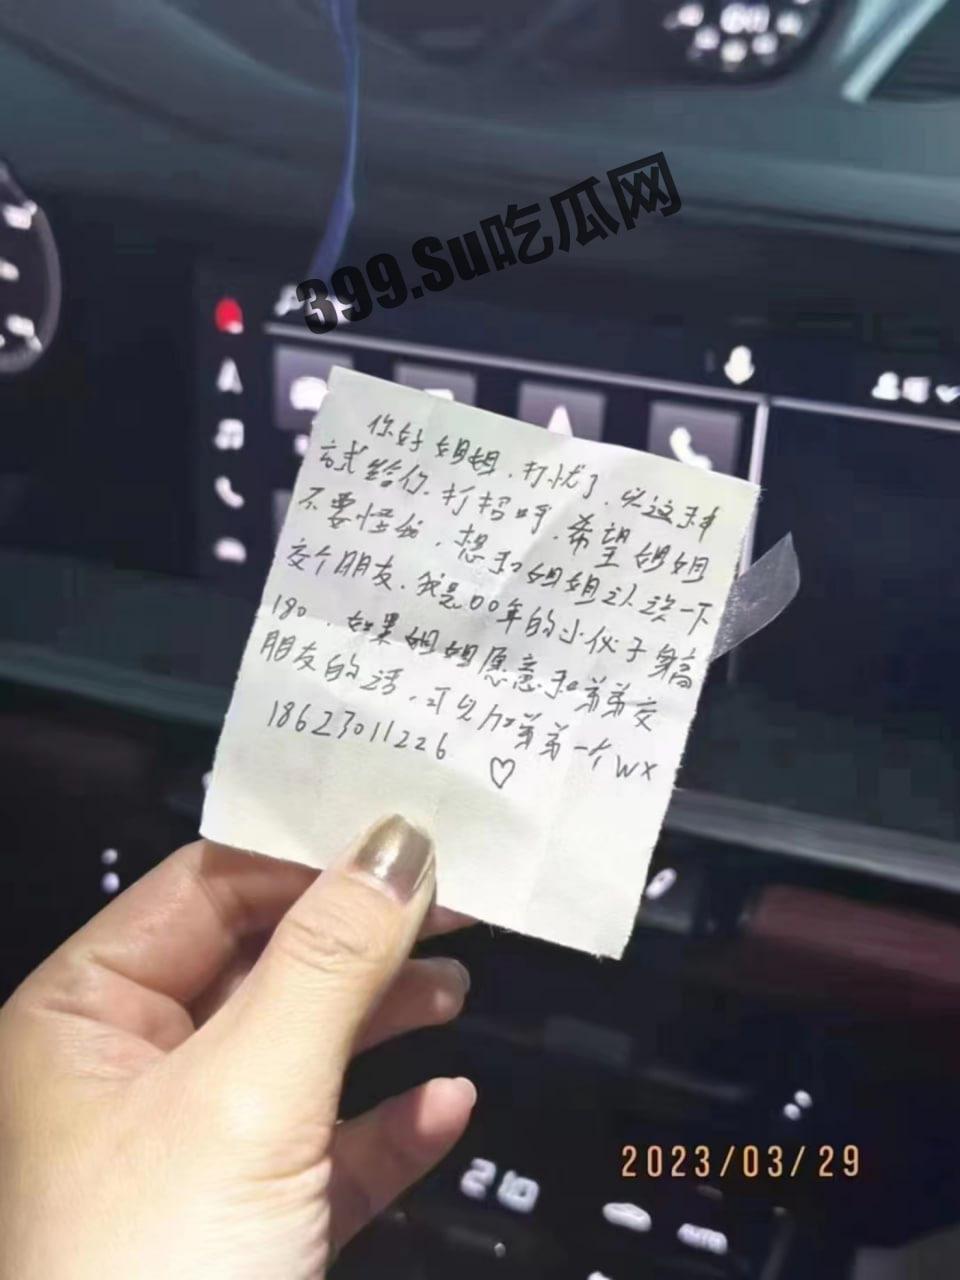 399.Su吃瓜网
你好姐姐，打扰了，以这种
方式给你打招呼，希望姐姐
不要怪我，想和姐姐认识一下
交个朋友，我是00年的小伙子身高
180，如果姐姐愿意和弟弟交
朋友的话，可以加弟弟一个WX
18623011226 ♡
2023/03/29
210
AUTO